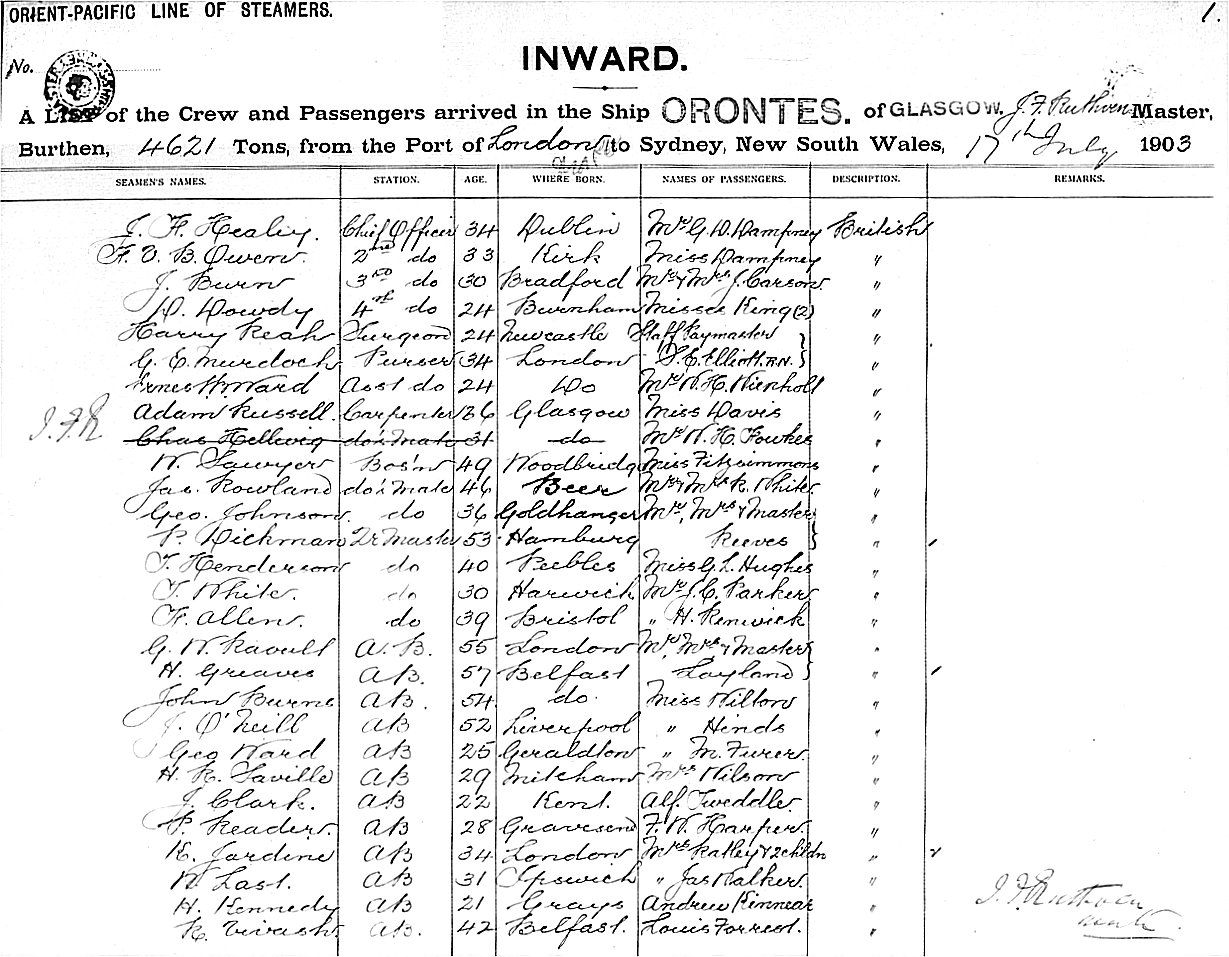 ORIENT-PACIFIC LINE OF STEAMERS.
1.
No.
INWARD.
A LIST of the Crew and Passengers arrived in the Ship ORONTES. of GLASGOW, J. F. Ruthven Master,
Burthen, 4621 Tons, from the Port of London to Sydney, New South Wales, 17th July 1903
SEAMEN'S NAMES. STATION. AGE. WHERE BORN. NAMES OF PASSENGERS. DESCRIPTION. REMARKS.
J. F. Healey. Chief Officer 34 Dublin Mr G. D. Dampney British
F. V. B. Owen. 2nd do 33 Kirk Miss Dampney "
J. Burn 3rd do 30 Bradford Mr & Mrs J. Carson "
D. Dowdy 4th do 24 Burnham Misses King (2) "
Harry Reah Surgeon 24 Newcastle Staff Paymaster }
G. E. Murdoch Purser 34 London S. E. Elliott. R.N. } "
Ernest Ward Asst do 24 Do Mr W. H. Nienholt "
Adam Russell. Carpenter 36 Glasgow Miss Davis "
J. F. R Chas Hellwig do's Mate 31 do Mr W. H. Fowkes "
W. Sawyer Bos'n 49 Woodbridge Miss Fitzsimmons "
Jas. Rowland do's Mate 46 Beer Mr & Mrs R. White "
Geo. Johnson. do 36 Goldhanger Mr, Mrs & Master }
P. Dickman Qr Master 53 Hamburg Reeves } "
T. Henderson do 40 Peebles Miss G. L. Hughes "
T. White. do 30 Harwich Mr J. C. Parker "
F. Allen. do 39 Bristol " H. Renwick "
G. W. Raoult A.B. 55 London Mr, Mrs & Master } "
H. Greaves AB. 57 Belfast Layland } "
John Burns AB. 54 do. Miss Wilton "
J. O'Neill AB 52 Liverpool " Hinds "
Geo Ward AB 25 Geraldton " M. Furer. "
H. R. Saville AB 29 Mitcham Mrs Wilson "
J. Clark. AB 22 Kent. Alf. Tweddle. "
P. Reader. AB 28 Gravesend F. W. Harper. "
K. Jardine AB 34 London Mrs Ratley & 2 childn "
W. Last. AB 31 Ipswich " Jas Walker. "
H. Kennedy AB 21 Grays Andrew Kinnear "
R. Vivash. AB. 42 Belfast. Louis Forrest. "
J. F. Ruthven